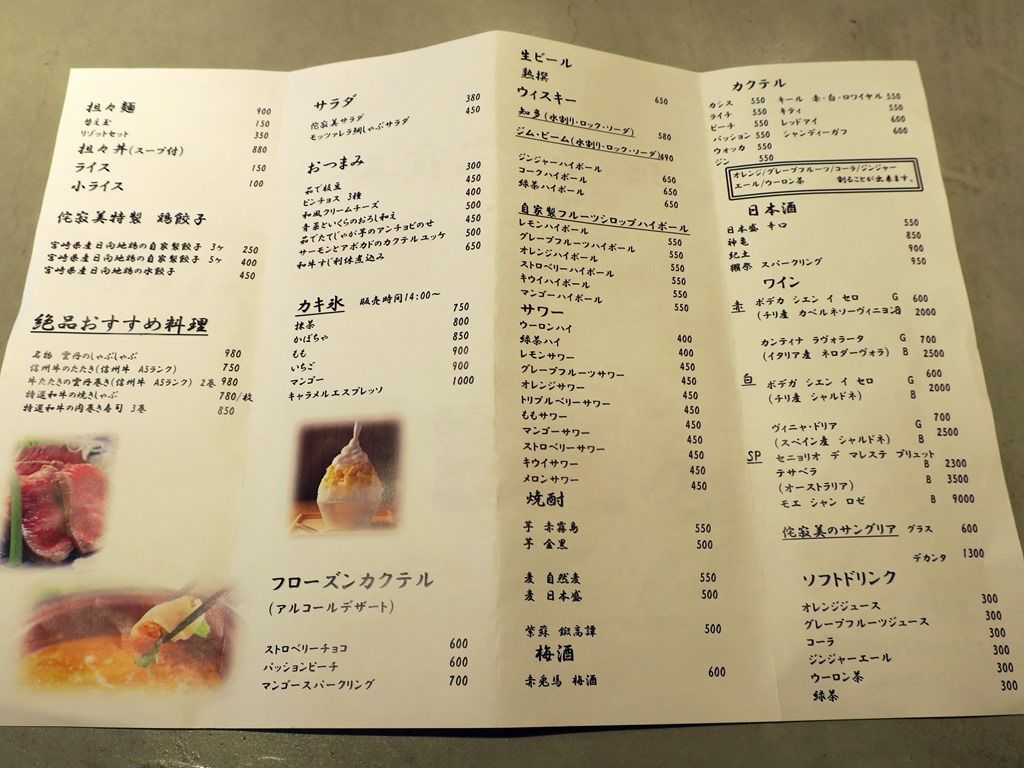 担々麺 900
替え玉 150
リゾットセット 350
担々丼(スープ付) 880
ライス 150
小ライス 100
侘寂美特製 鶏餃子
宮崎県産日向地鶏の自家製餃子 3ヶ 250
宮崎県産日向地鶏の自家製餃子 5ヶ 400
宮崎県産日向地鶏の水餃子 450
絶品おすすめ料理
名物 雲丹のしゃぶしゃぶ 980
信州牛のたたき(信州牛 A5ランク) 750
牛たたきの雲丹巻き(信州牛 A5ランク) 2巻 980
特選和牛の焼きしゃぶ 780/枚
特選和牛の肉巻き寿司 3巻 850
サラダ
侘寂美サラダ 380
モッツァレラ鯛しゃぶサラダ 450
おつまみ
茹で枝豆 300
ピンチョス 3種 450
和風クリームチーズ 400
青菜といくらのおろし和え 500
茹でたてじゃが芋のアンチョビのせ 450
サーモンとアボカドのカクテルユッケ 500
和牛すじ利休煮込み 650
カキ氷 販売時間14:00〜
抹茶 750
かぼちゃ 800
もも 850
いちご 900
マンゴー 900
キャラメルエスプレッソ 1000
フローズンカクテル
(アルコールデザート)
ストロベリーチョコ 600
パッションピーチ 600
マンゴースパークリング 700
生ビール
熟撰 650
ウィスキー
知多(水割り・ロック・ソーダ) 580
ジム・ビーム(水割り・ロック・ソーダ) 490
ジンジャーハイボール 650
コークハイボール 650
緑茶ハイボール 650
自家製フルーツシロップハイボール
レモンハイボール 550
グレープフルーツハイボール 550
オレンジハイボール 550
ストロベリーハイボール 550
キウイハイボール 550
マンゴーハイボール 550
サワー
ウーロンハイ 400
緑茶ハイ 400
レモンサワー 450
グレープフルーツサワー 450
オレンジサワー 450
トリプルベリーサワー 450
ももサワー 450
マンゴーサワー 450
ストロベリーサワー 450
キウイサワー 450
メロンサワー 450
焼酎
芋 赤霧島 550
芋 金黒 500
麦 自然麦 550
麦 日本盛 500
紫蘇 鍛高譚 500
梅酒
赤兎馬 梅酒 600
カクテル
カシス 550 キール 赤・白・ロワイヤル 550
ライチ 550 キティ 550
ピーチ 550 レッドアイ 600
パッション 550 シャンディーガフ 600
ウォッカ 550
ジン 550
オレンジ/グレープフルーツ/コーラ/ジンジャー
エール/ウーロン茶 割ることが出来ます。
日本酒
日本盛 辛口 550
神亀 850
紀土 900
獺祭 スパークリング 950
ワイン
赤 ボデガ シエン イ セロ G 600
(チリ産 カベルネソーヴィニヨン) B 2000
カンティナ ラヴォラータ G 700
(イタリア産 ネロダーヴォラ) B 2500
白 ボデガ シエン イ セロ G 600
(チリ産 シャルドネ) B 2000
ヴィニャ・ドリア G 700
(スペイン産 シャルドネ) B 2500
SP セニョリオ デ マレステ ブリュット B 2300
テサベラ B 3500
(オーストラリア)
モエ シャン ロゼ B 9000
侘寂美のサングリア グラス 600
デカンタ 1300
ソフトドリンク
オレンジジュース 300
グレープフルーツジュース 300
コーラ 300
ジンジャーエール 300
ウーロン茶 300
緑茶 300